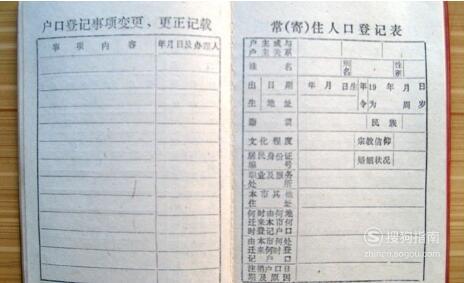 户口登记事项变更、更正记载
事项内容 年月日及办理人
常(寄)住人口登记表
户主或与
户主关系
姓名 别名 性别
出日期 年月日生 年19年月日
生地址 今为周岁
籍贯 民族
文化程度 宗教信仰
居民身份证
编号 婚姻状况
职业及服务
处所
本市其他
住址
何时由何地
迁来本市何
时登记户口
由本市何处
迁来何时登
记户口
注销户口日
期及原因
搜狗指南
zhinan.sogou.com